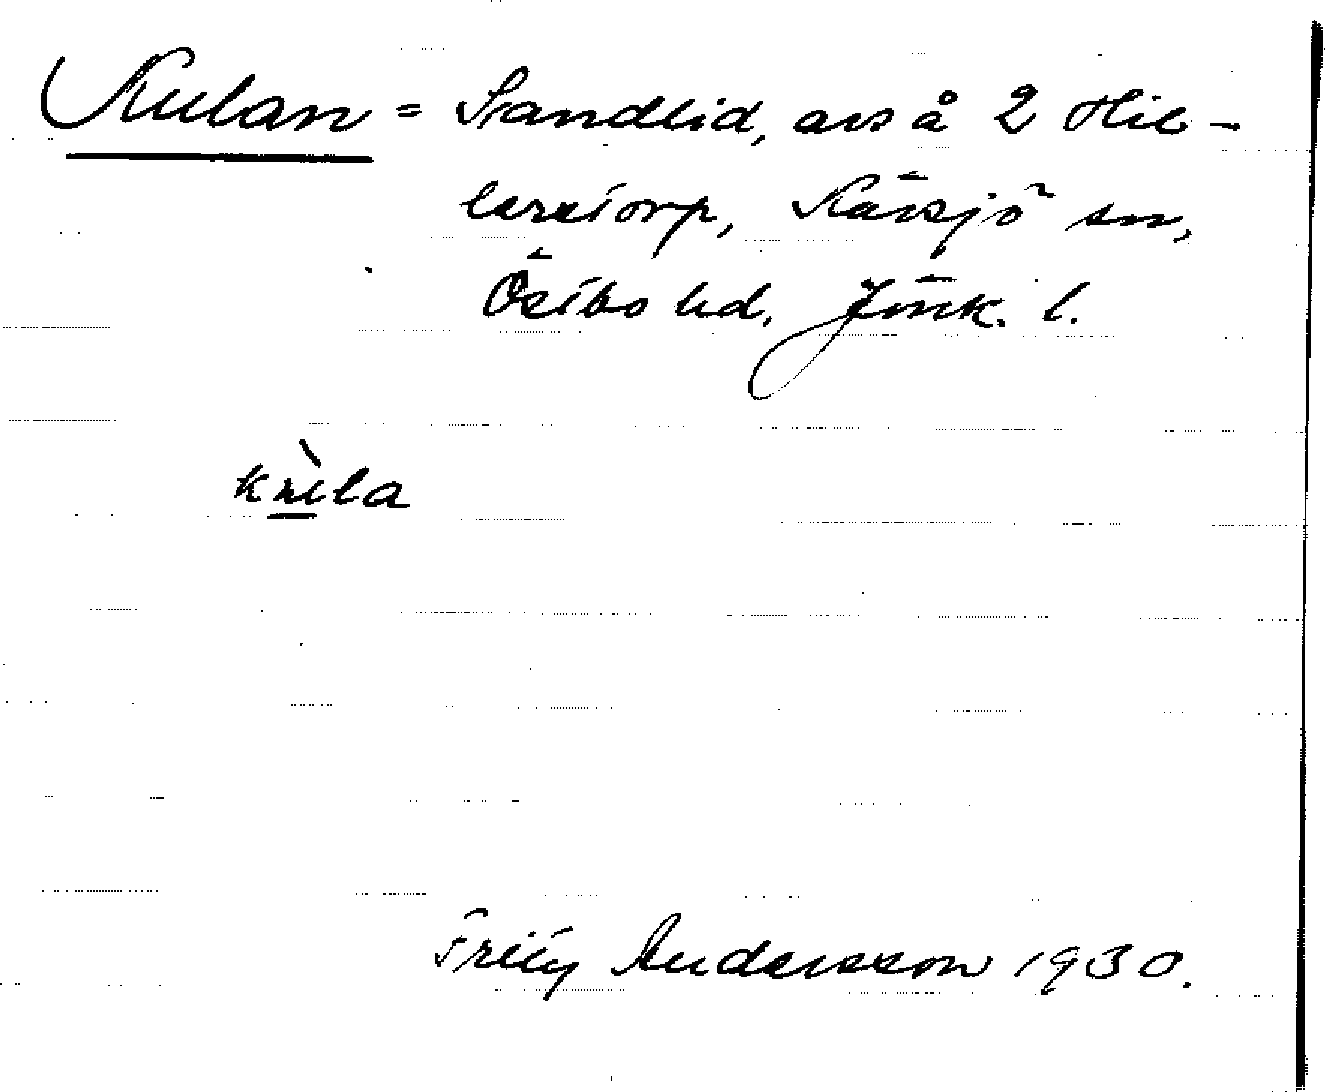 Kulan = Sandlid, avs å 2 Hil-
lerstorp, Kävsjö sn,
Östbo hd, Jönk. l.
kùla
Fritz Andersson 1930.